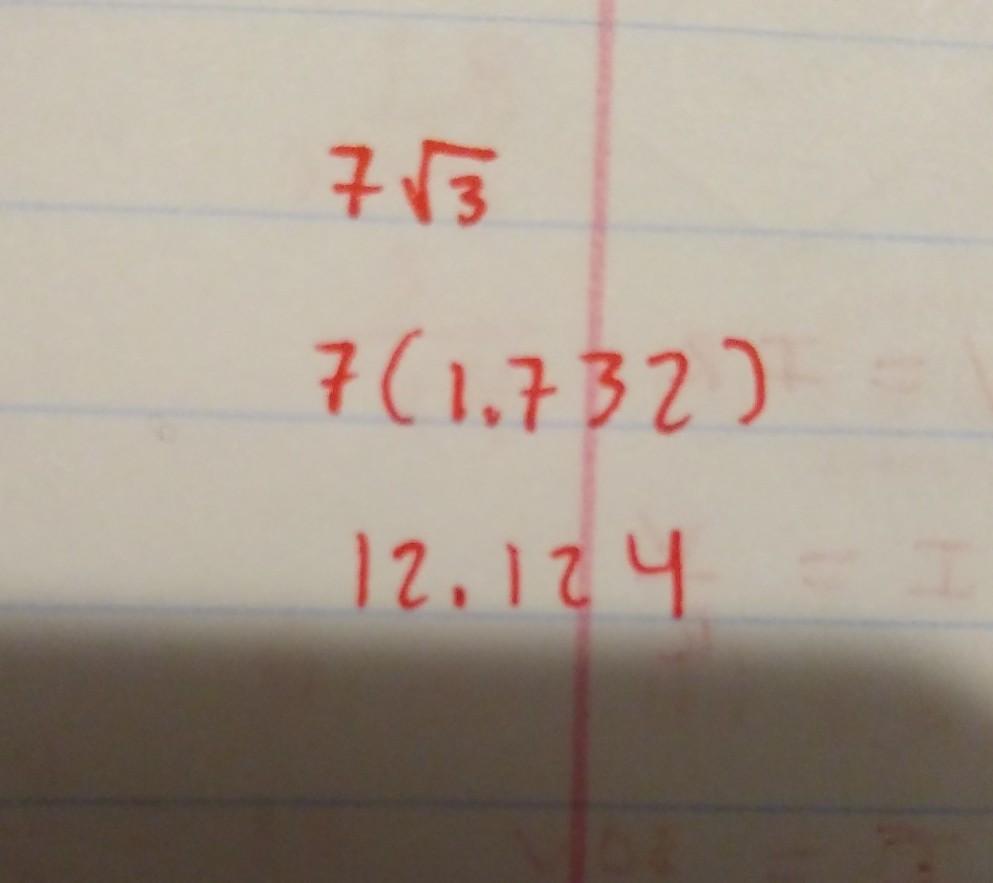 7√3
7(1.732)
12.124